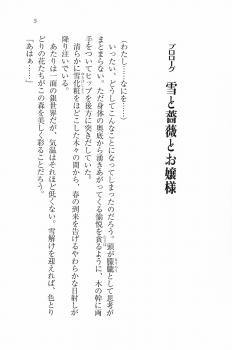 5
プロローグ 雪と薔薇とお嬢様
(わたし……なにを……)
いったい、どうしてこんなことになってしまったのだろう。頭が朦朧として思考が
まとまらない。ただ身体の奥底から湧きあがってくる愉悦を貪るように、木の幹に両
手をついてヒップを後方に突きだしていた。
清らかに雪化粧をほどこした木々の間から、春の到来を告げるやわらかな日射しが
降り注いでいる。
あたりは一面の銀世界だが、気温はそれほど低くない。雪解けを迎えれば、色とり
どりの花たちがこの森を美しく彩ることだろう。
「あはぁ……」